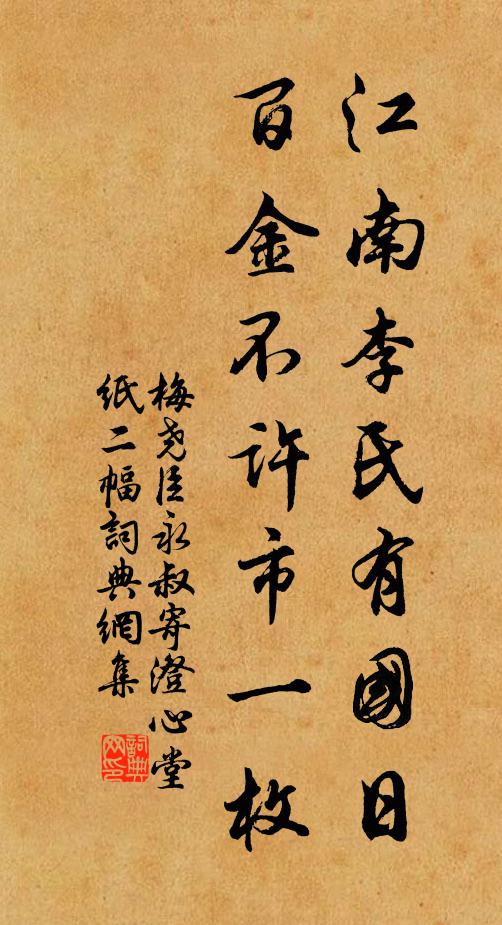 江南李氏有國日
百金不許市一枚
梅堯臣永叔寄澄心堂
紙二幅詞典網集
詞典網印